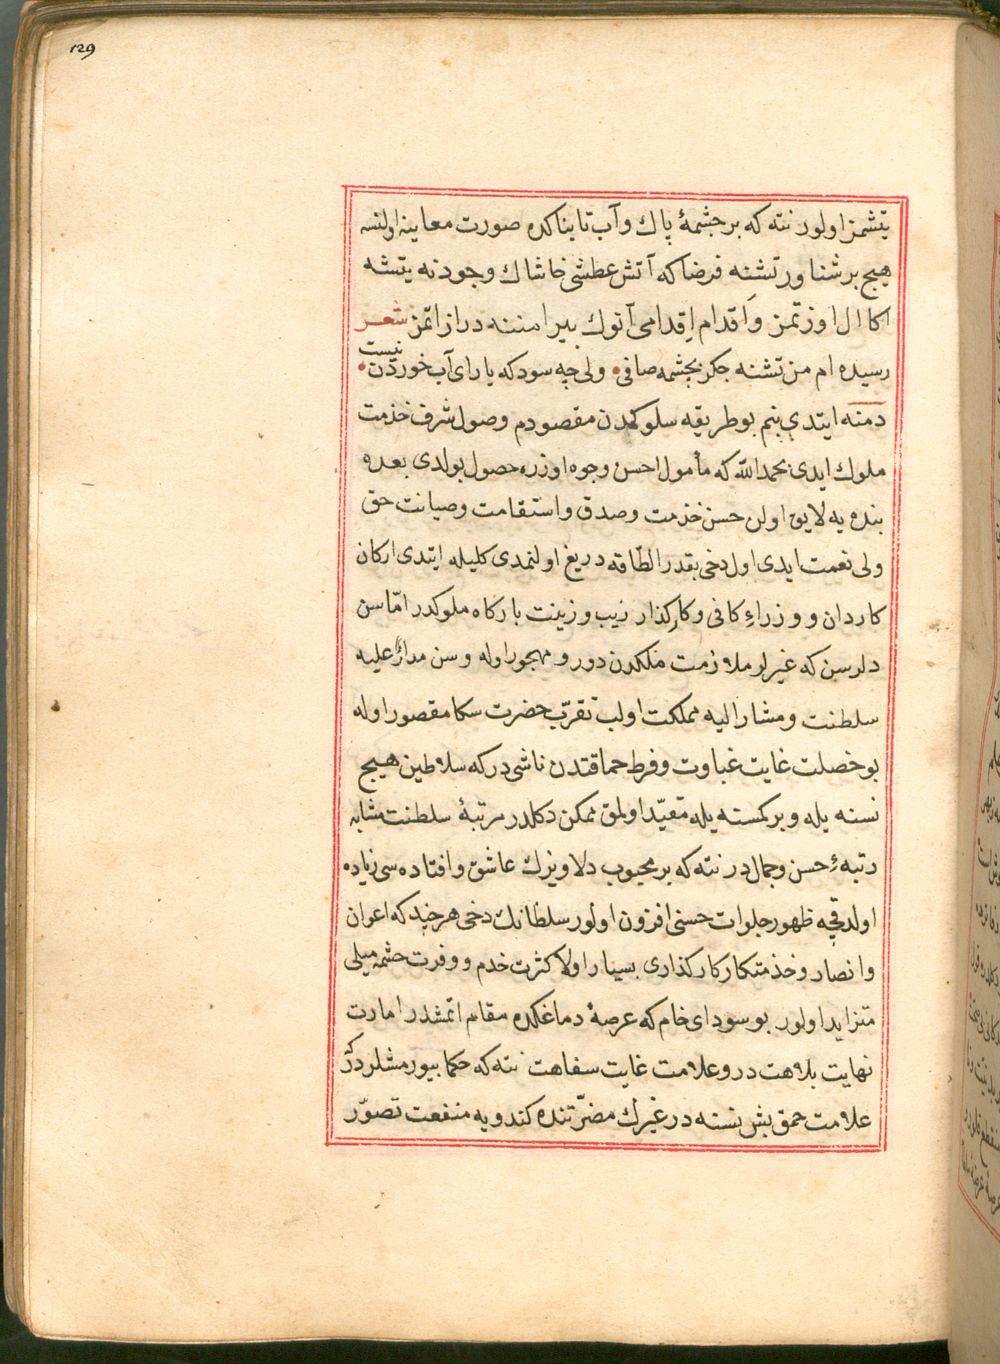 129
یتشمز اولور نته که بر چشمۀ پاك و آب تابناکده صورت معاینه اولنسه
هیچ بر شناور تشنه فرضا که آتش عطشی خاشاك وجودنه یتشه
اکا ال اوزتمز و اَقدام اِقدامی آنوك پیرامننه دراز اتمز شعر
رسیده ام من تشنه جکر بچشمه صافی • ولی چه سود که یارای آب خوردن نیست •
دمنه ایتدی بنم بو طریقه سلوکمدن مقصودم وصول شرف خذمت
ملوك ایدی بحمد الله که مأمول احسن وجوه اوزره حصول بولدی بعده
بنده یه لایق اولن حسن خذمت و صدق و استقامت و صیانت حق
ولی نعمت ایدی اول دخی بقدر الطاقه دریغ اولنمدی کلیله ایتدی ارکان
کاردان و وزراء کافی و کارکذار زیب و زینت بارکاه ملوکدر امّا سن
دلرسن که غیرلر ملازمت ملکدن دور و مهجور اوله و سن مدارٌ علیه
سلطنت و مشار الیه مملکت اولب تقرّب حضرت سکا مقصور اوله
بو خصلت غایت غباوت و فرط حماقتدن ناشی در که سلاطین هیچ
نسنه یله و بر کمسنه یله مقیّد اولمق ممکن دکلدر مرتبۀ سلطنت مشابه
رتبهٔ حسن و جمال در نته که بر محبوب دلاویزك عاشق و افتاده سی زیاده
اولدقچه ظهور جلوات حسنی افزون اولور سلطانك دخی هر چند که اعوان
و انصار و خذمتکار کارکذاری بسیار اولا کثرت خدم و وفرت حشمه میلی
متزاید اولور بو سودای خام که عرصۀ دماغکده مقام اتمشدر امارت
نهایت بلاهت در و علامت غایت سفاهت نته که حکما بیورمشلردر که
علامت حمق بش نسنه در غیرك مضرّتنده کندویه منفعت تصوّر